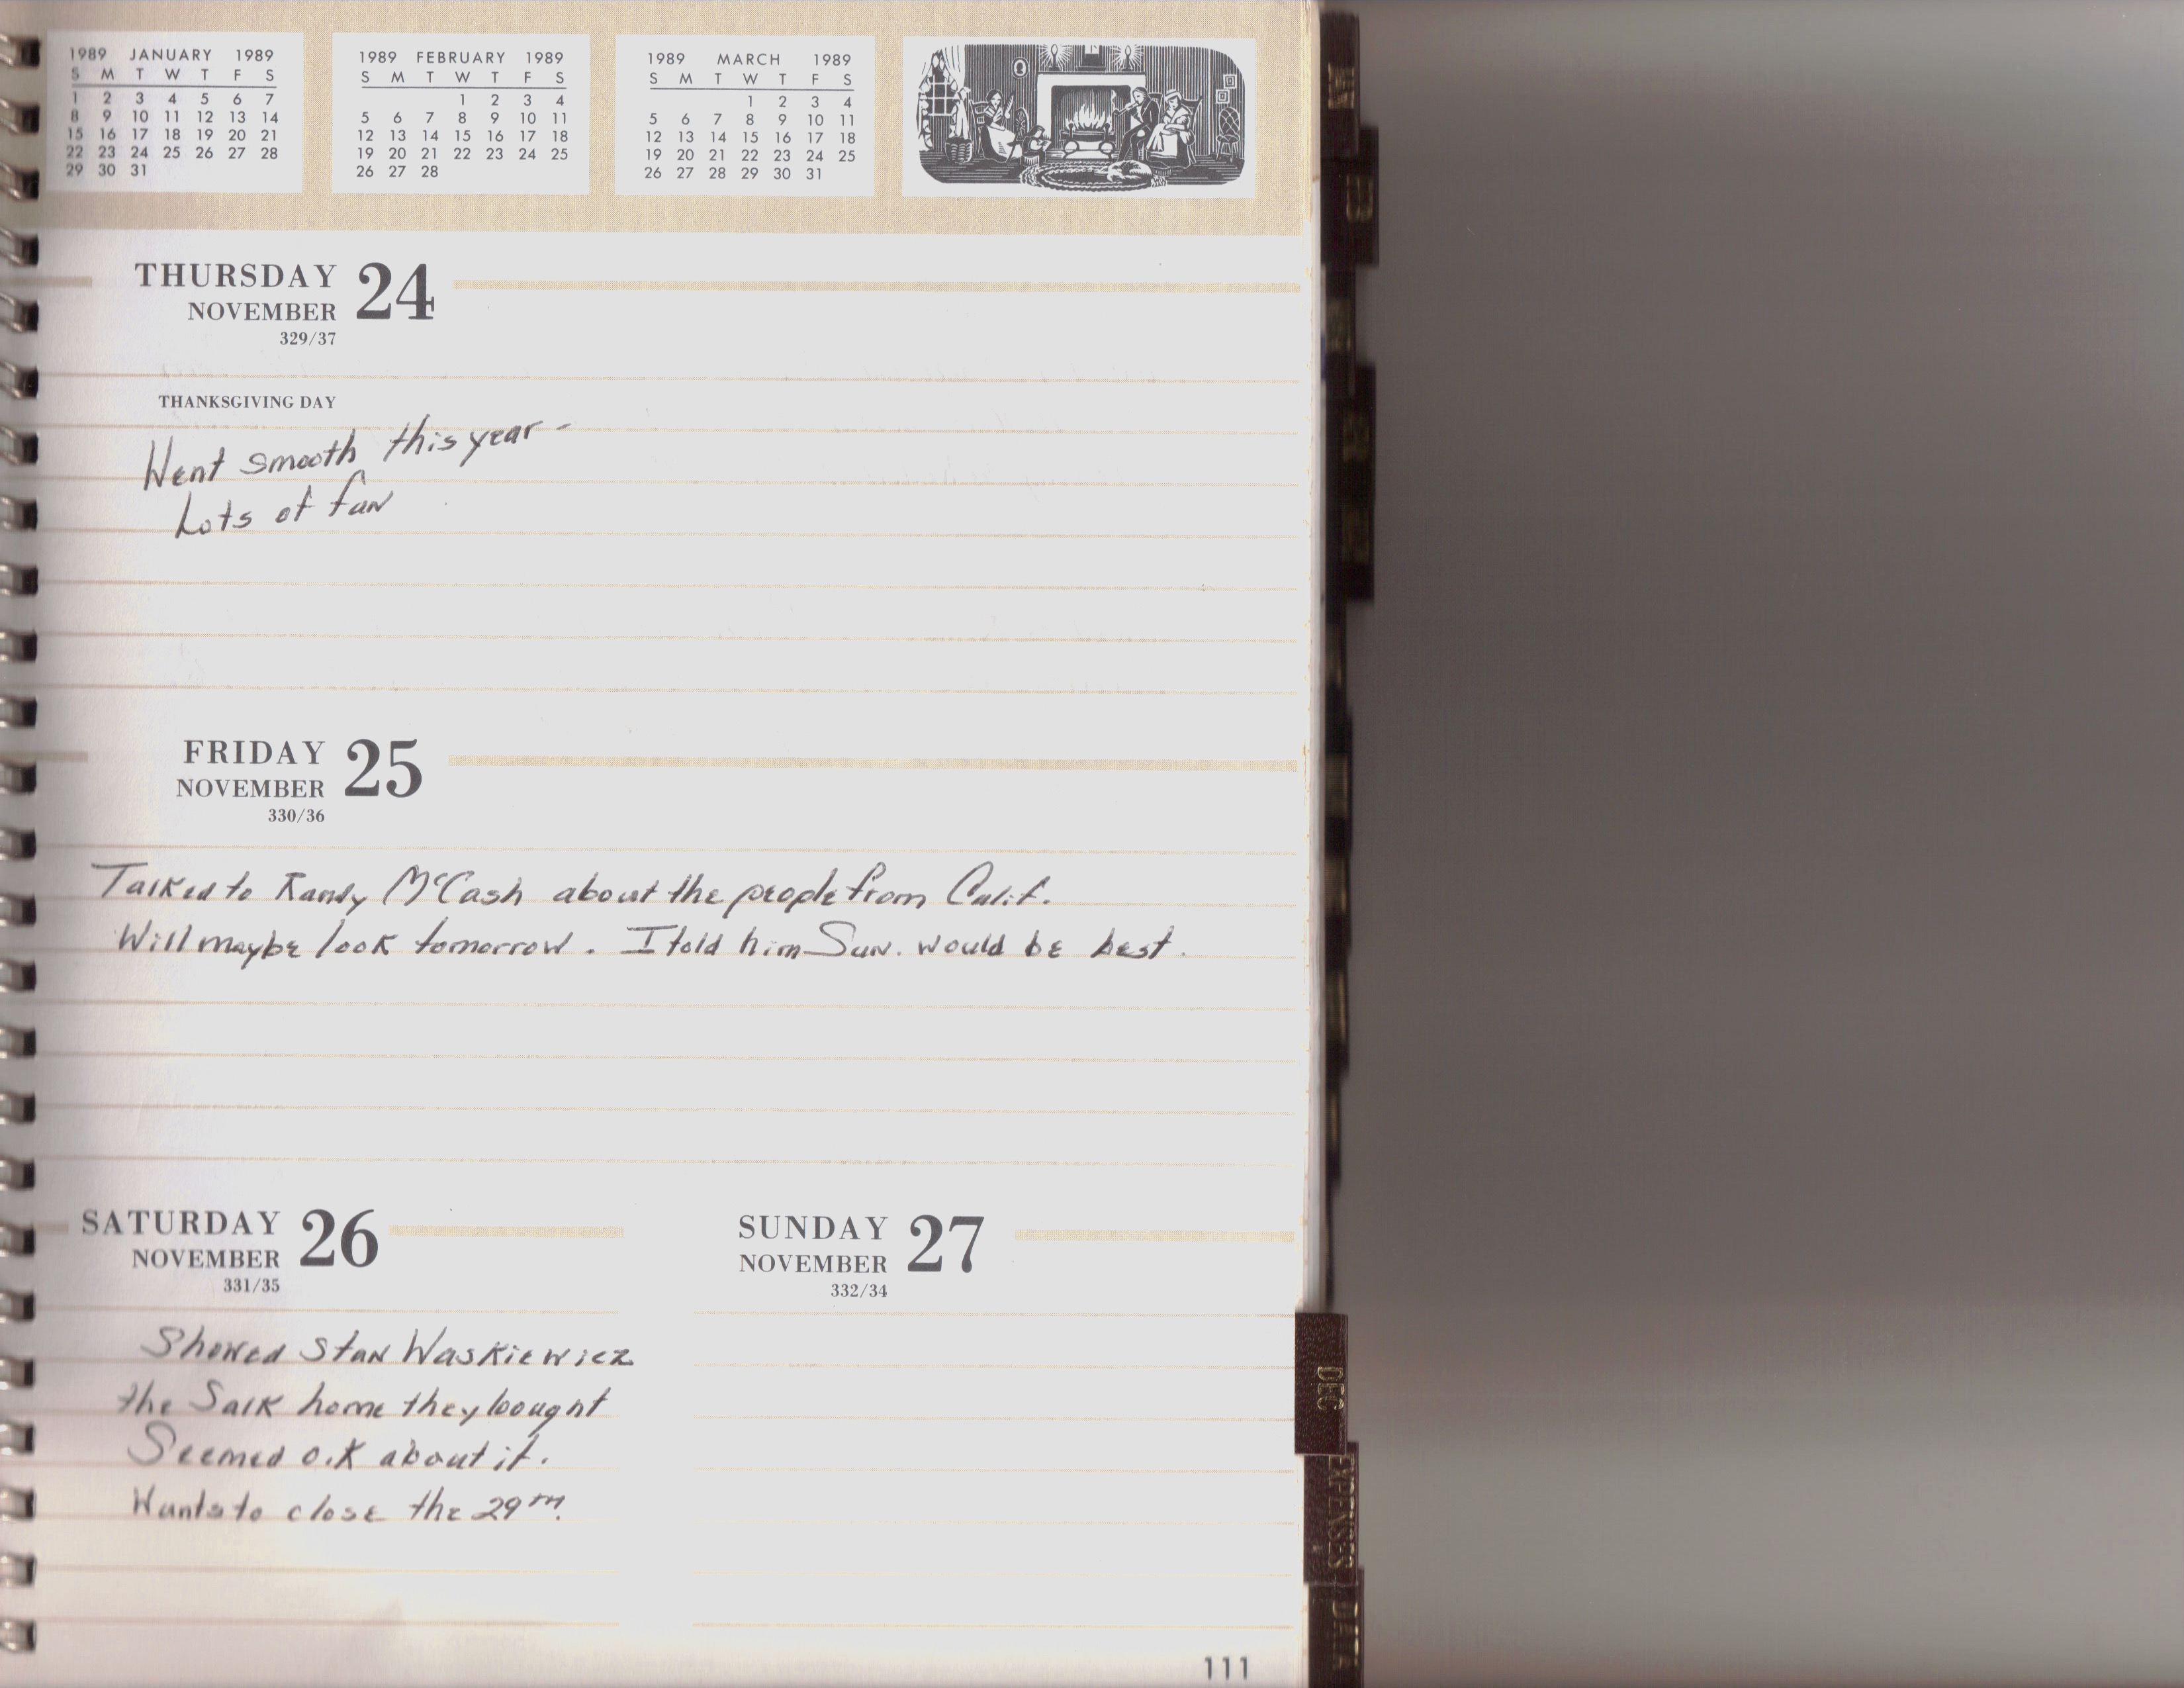 1989 JANUARY 1989
S M T W T F S
1 2 3 4 5 6 7
8 9 10 11 12 13 14
15 16 17 18 19 20 21
22 23 24 25 26 27 28
29 30 31
1989 FEBRUARY 1989
S M T W T F S
1 2 3 4
5 6 7 8 9 10 11
12 13 14 15 16 17 18
19 20 21 22 23 24 25
26 27 28
1989 MARCH 1989
S M T W T F S
1 2 3 4
5 6 7 8 9 10 11
12 13 14 15 16 17 18
19 20 21 22 23 24 25
26 27 28 29 30 31
THURSDAY 24
NOVEMBER
329/37
THANKSGIVING DAY
Went smooth this year -
Lots of fun
FRIDAY 25
NOVEMBER
330/36
Talked to Randy McCash about the people from Calif.
Will maybe look tomorrow. I told him Sun. would be best.
SATURDAY 26
NOVEMBER
331/35
Showed Stan Waskiewicz
the Salk home they bought
Seemed O.K about it.
Wants to close the 29TH.
SUNDAY 27
NOVEMBER
332/34
111
JAN
FEB
DEC
EXPENSES
DATA